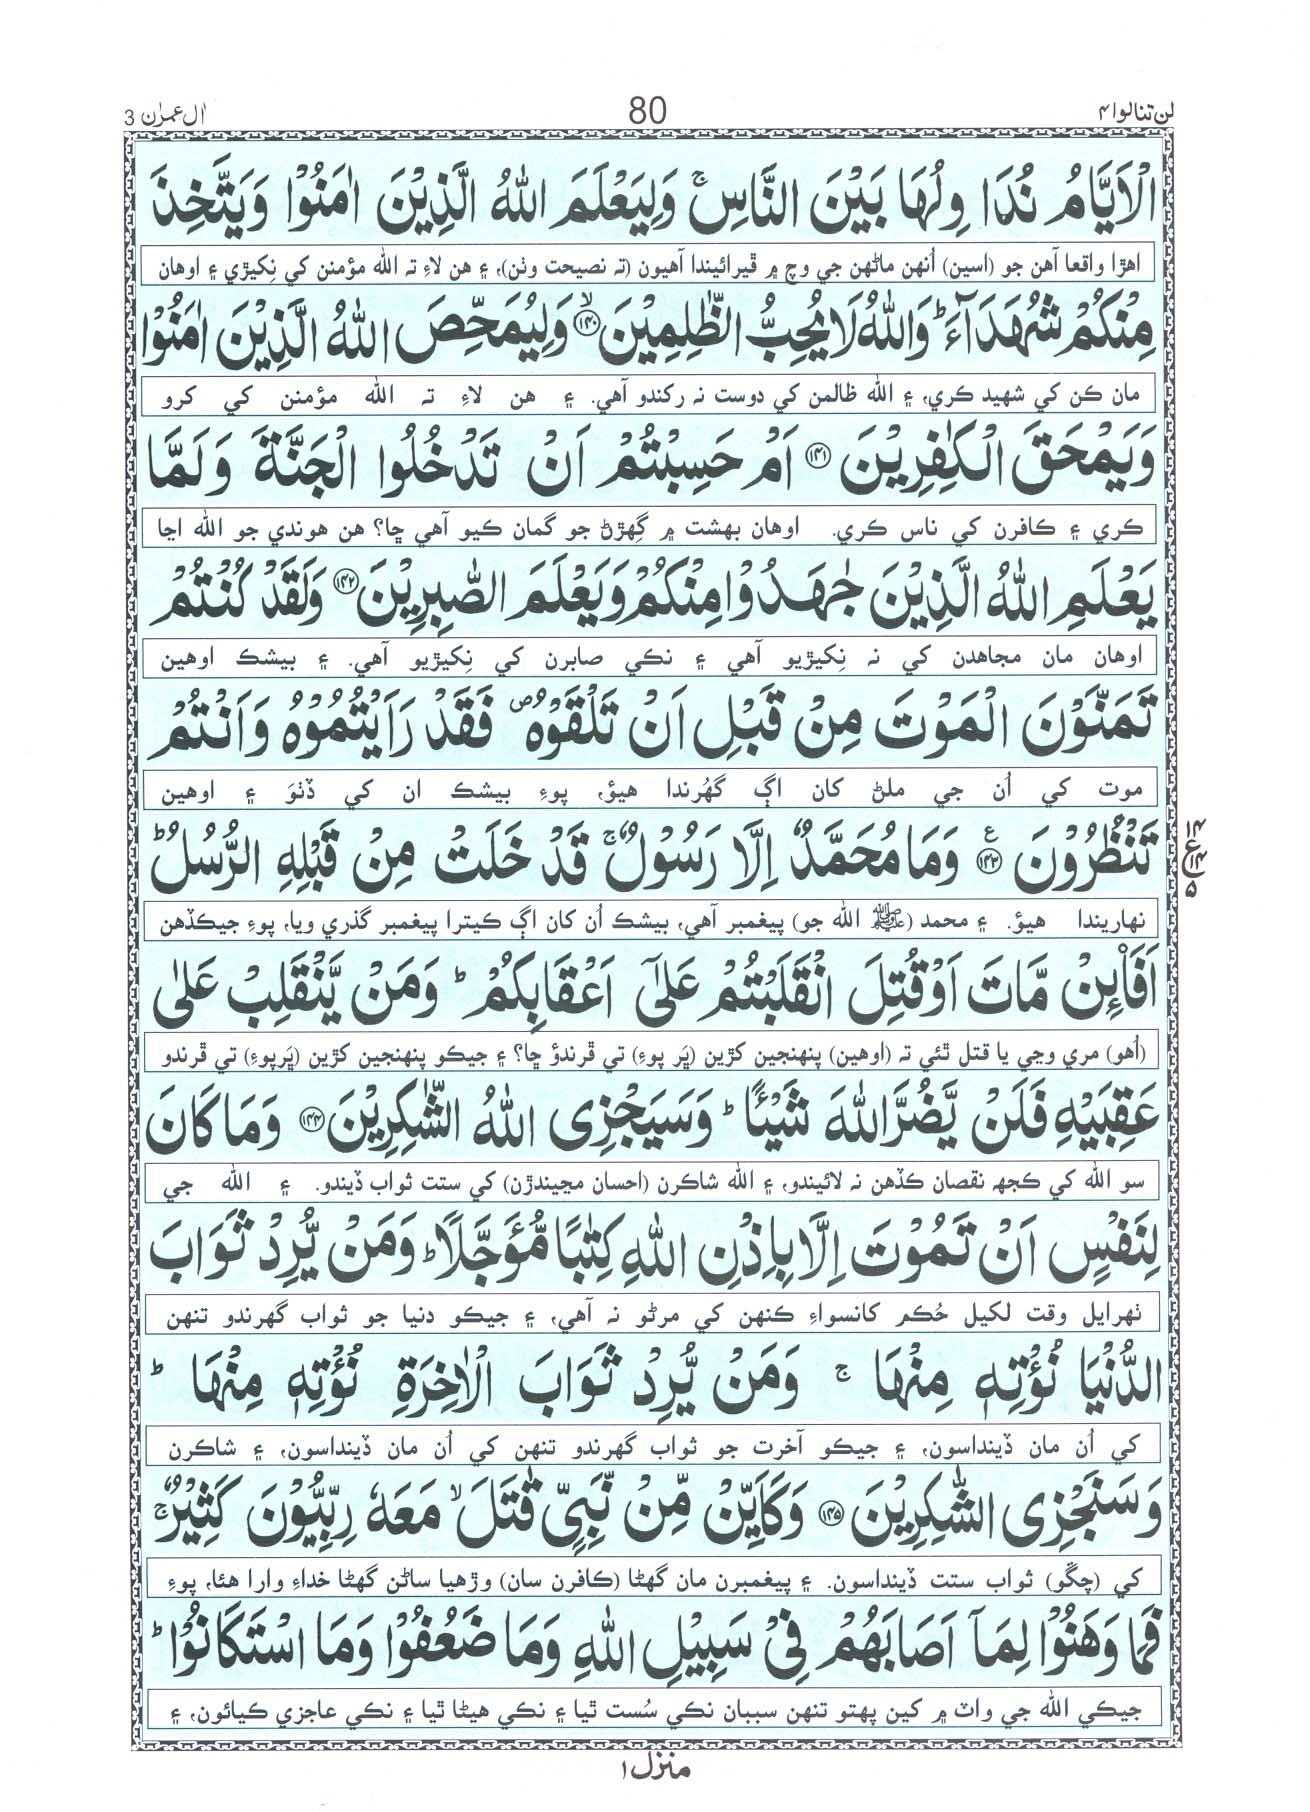 لن تنالوا ۴
80
اٰل عمرٰن 3
الْاَيَّامُ نُدَاوِلُهَا بَيْنَ النَّاسِ ۚ وَلِيَعْلَمَ اللّٰهُ الَّذِيْنَ اٰمَنُوْا وَيَتَّخِذَ
اهڙا واقعا آهن جو (اسين) اُنهن ماڻهن جي وچ ۾ ڦيرائيندا آهيون (ته نصيحت وٺن)، ۽ هن لاءِ ته الله مؤمنن کي نِکيڙي ۽ اوهان
مِنْكُمْ شُهَدَآءَ ؕ وَاللّٰهُ لَا يُحِبُّ الظّٰلِمِيْنَ ۙ﴿۱۴۰﴾ وَلِيُمَحِّصَ اللّٰهُ الَّذِيْنَ اٰمَنُوْا
مان ڪن کي شهيد ڪري، ۽ الله ظالمن کي دوست نہ رکندو آهي. ۽ هن لاءِ تہ الله مؤمنن کي کرو
وَيَمْحَقَ الْكٰفِرِيْنَ ﴿۱۴۱﴾ اَمْ حَسِبْتُمْ اَنْ تَدْخُلُوا الْجَنَّةَ وَلَمَّا
ڪري ۽ ڪافرن کي ناس ڪري. اوهان بهشت ۾ گِهڙڻ جو گمان ڪيو آهي ڇا؟ هن هوندي جو الله اڃا
يَعْلَمِ اللّٰهُ الَّذِيْنَ جٰهَدُوْا مِنْكُمْ وَيَعْلَمَ الصّٰبِرِيْنَ ﴿۱۴۲﴾ وَلَقَدْ كُنْتُمْ
اوهان مان مجاهدن کي نہ نِکيڙيو آهي ۽ نڪي صابرن کي نِکيڙيو آهي. ۽ بيشڪ اوهين
تَمَنَّوْنَ الْمَوْتَ مِنْ قَبْلِ اَنْ تَلْقَوْهُ ۪ فَقَدْ رَاَيْتُمُوْهُ وَاَنْتُمْ
موت کي اُن جي ملڻ کان اڳ گهُرندا هيؤ، پوءِ بيشڪ ان کي ڏٺوَ ۽ اوهين
تَنْظُرُوْنَ ﴿۱۴۳﴾ ع وَمَا مُحَمَّدٌ اِلَّا رَسُوْلٌ ۚ قَدْ خَلَتْ مِنْ قَبْلِهِ الرُّسُلُ ؕ
نهاريندا هيؤ. ۽ محمد (ﷺ الله جو) پيغمبر آهي، بيشڪ اُن کان اڳ ڪيترا پيغمبر گذري ويا، پوءِ جيڪڏهن
اَفَا۟ئِنْ مَّاتَ اَوْ قُتِلَ انْقَلَبْتُمْ عَلٰٓى اَعْقَابِكُمْ ؕ وَمَنْ يَّنْقَلِبْ عَلٰى
(اُهو) مري وڃي يا قتل ٿئي تہ (اوهين) پنهنجين کڙين (ڀَر پوءِ) تي ڦرندؤ ڇا؟ ۽ جيڪو پنهنجين کڙين (ڀَرپوءِ) تي ڦرندو
عَقِبَيْهِ فَلَنْ يَّضُرَّ اللّٰهَ شَيْـًٔا ؕ وَسَيَجْزِى اللّٰهُ الشّٰكِرِيْنَ ﴿۱۴۴﴾ وَمَا كَانَ
سو الله کي ڪجهہ نقصان ڪڏهن نہ لائيندو، ۽ الله شاڪرن (احسان مڃيندڙن) کي ستت ثواب ڏيندو. ۽ الله جي
لِنَفْسٍ اَنْ تَمُوْتَ اِلَّا بِاِذْنِ اللّٰهِ كِتٰبًا مُّؤَجَّلًا ؕ وَمَنْ يُّرِدْ ثَوَابَ
ٺهرايل وقت لکيل حُڪم کانسواءِ ڪنهن کي مرڻو نہ آهي، ۽ جيڪو دنيا جو ثواب گهرندو تنهن
الدُّنْيَا نُؤْتِهٖ مِنْهَا ۚ وَمَنْ يُّرِدْ ثَوَابَ الْاٰخِرَةِ نُؤْتِهٖ مِنْهَا ؕ
کي اُن مان ڏينداسون، ۽ جيڪو آخرت جو ثواب گهرندو تنهن کي اُن مان ڏينداسون، ۽ شاڪرن
وَسَنَجْزِى الشّٰكِرِيْنَ ﴿۱۴۵﴾ وَكَاَيِّنْ مِّنْ نَّبِىٍّ قٰتَلَ ۙ مَعَهٗ رِبِّيُّوْنَ كَثِيْرٌ ۚ
کي (چڱو) ثواب ستت ڏينداسون. ۽ پيغمبرن مان گهڻا (ڪافرن سان) وڙهيا ساڻن گهڻا خداءِ وارا هئا، پوءِ
فَمَا وَهَنُوْا لِمَآ اَصَابَهُمْ فِىْ سَبِيْلِ اللّٰهِ وَمَا ضَعُفُوْا وَمَا اسْتَكَانُوْا ؕ
جيڪي الله جي واٽ ۾ کين پهتو تنهن سببان نڪي سُست ٿيا ۽ نڪي هيڻا ٿيا ۽ نڪي عاجزي ڪيائون، ۽
منزل ۱